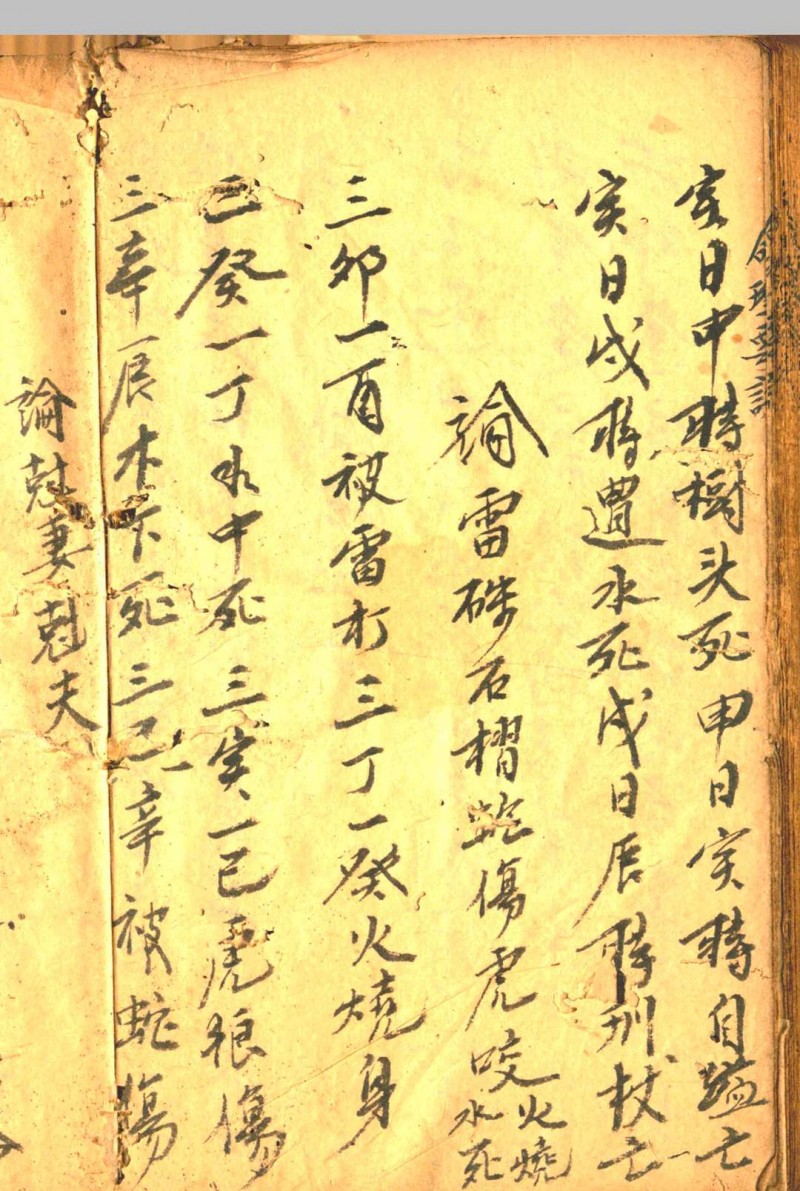 命理要訣
寅日申時樹头死申日寅時自縊亡
寅日戌時遭水死戌日辰時刑杖亡
論雷硃石摺蛇傷虎咬火燒水死
三卯一酉被雷打三丁一癸火燒身
三癸一丁水中死三寅一巳虎狼傷
三辛一辰木下死三巳一辛被蛇傷
論尅妻尅夫